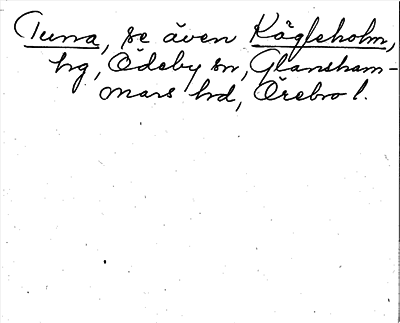 Tuna, se även Kägleholm,
hg, Ödeby sn, Glansham-
mars hd, Örebro l.